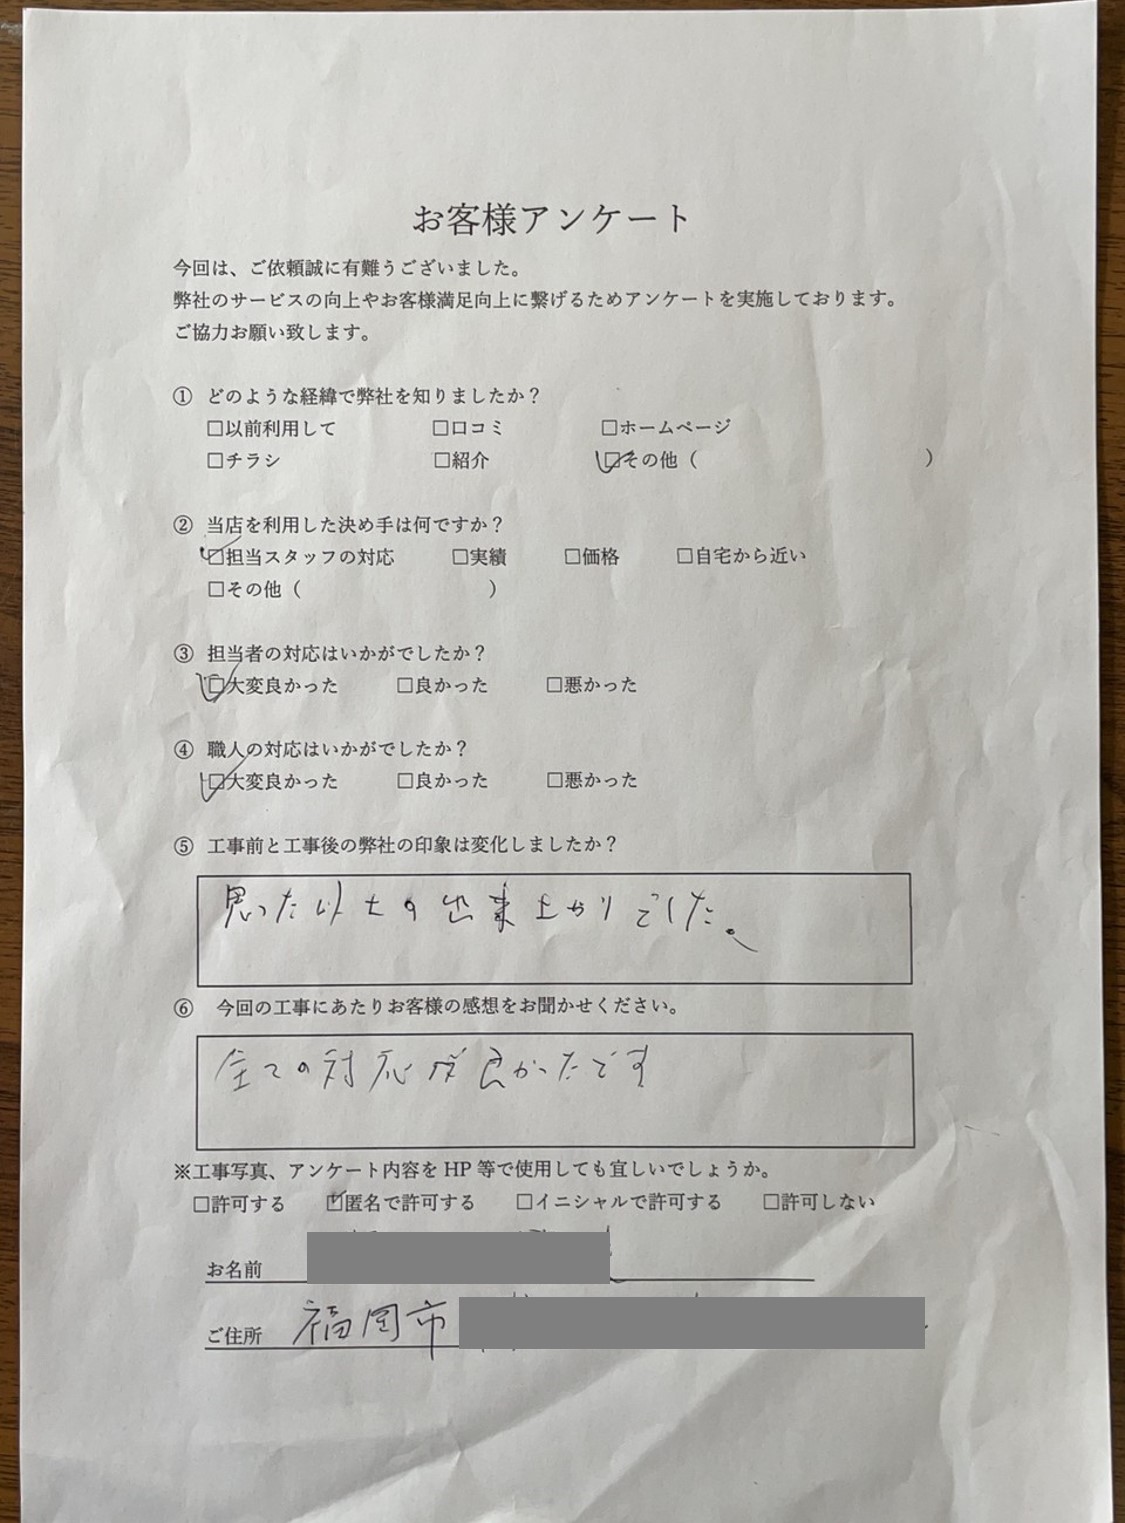 お客様アンケート
今回は、ご依頼誠に有難うございました。
弊社のサービスの向上やお客様満足向上に繋げるためアンケートを実施しております。
ご協力お願い致します。
① どのような経緯で弊社を知りましたか？
□以前利用して □口コミ □ホームページ
□チラシ □紹介 ☑その他（ ）
② 当店を利用した決め手は何ですか？
☑担当スタッフの対応 □実績 □価格 □自宅から近い
□その他（ ）
③ 担当者の対応はいかがでしたか？
☑大変良かった □良かった □悪かった
④ 職人の対応はいかがでしたか？
☑大変良かった □良かった □悪かった
⑤ 工事前と工事後の弊社の印象は変化しましたか？
思った以上の出来上がりでした。
⑥ 今回の工事にあたりお客様の感想をお聞かせください。
全ての対応が良かったです
※工事写真、アンケート内容を HP 等で使用しても宜しいでしょうか。
□許可する ☑匿名で許可する □イニシャルで許可する □許可しない
お名前
ご住所 福岡市